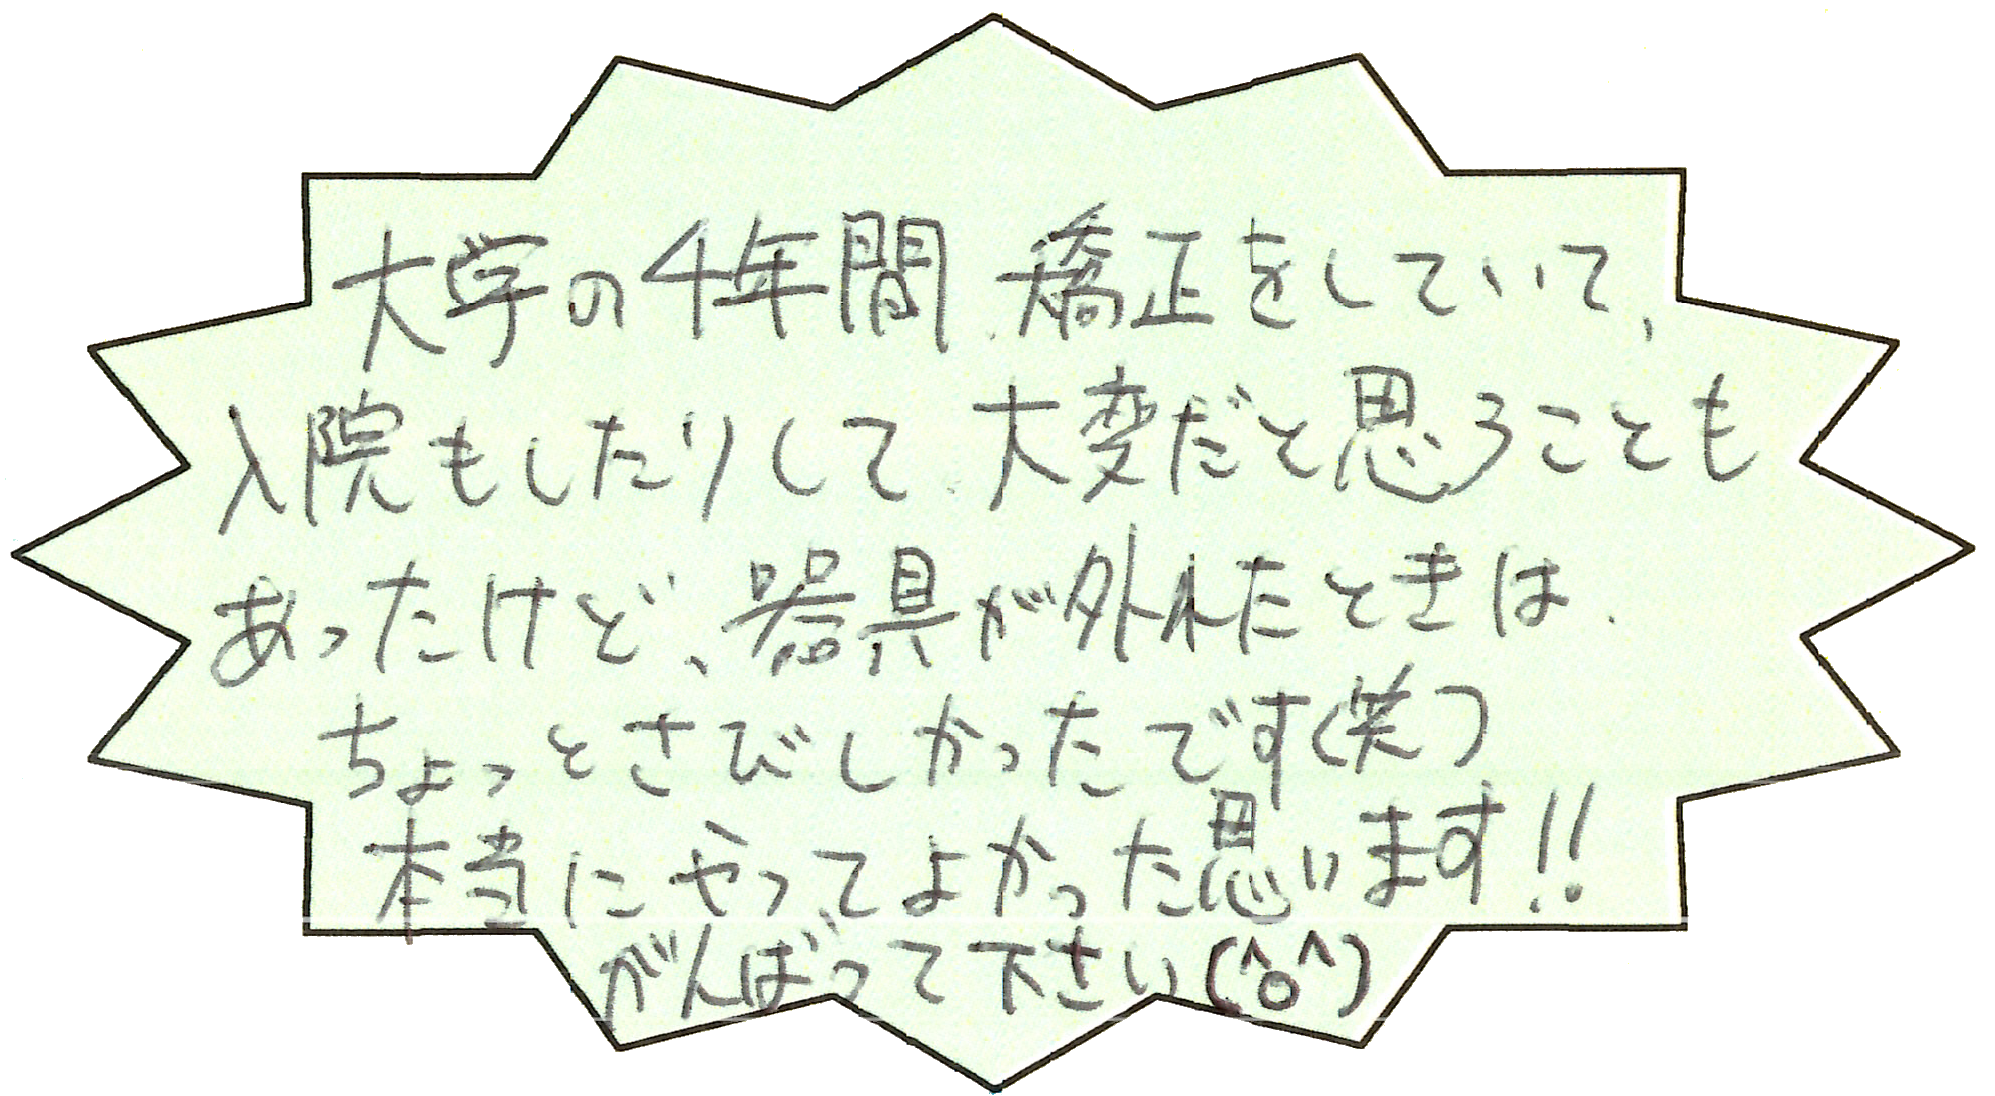 大学の4年間、矯正をしていて、
入院もしたりして、大変だと思うことも
あったけど、器具が外れたときは、
ちょっとさびしかったです(笑)
本当にやってよかった思います!!
がんばって下さい(^o^)